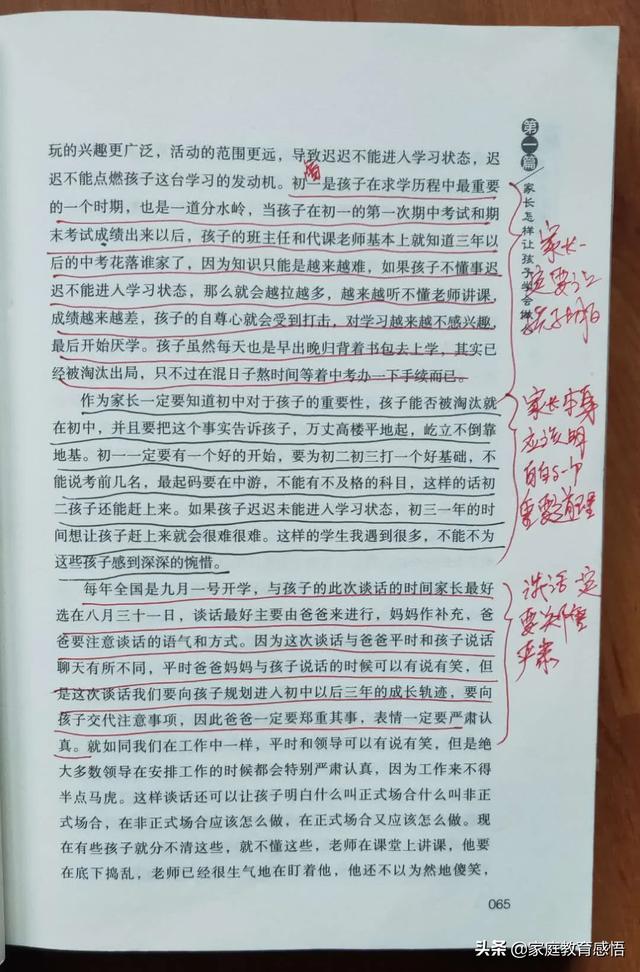 玩的兴趣更广泛，活动的范围更远，导致迟迟不能进入学习状态，迟
迟不能点燃孩子这台学习的发动机。初一是孩子在求学历程中最重要
的一个时期，也是一道分水岭，当孩子在初一的第一次期中考试和期
末考试成绩出来以后，孩子的班主任和代课老师基本上就知道三年以
后的中考花落谁家了，因为知识只能是越来越难，如果孩子不懂事迟
迟不能进入学习状态，那么就会越拉越多，越来越听不懂老师讲课，
成绩越来越差，孩子的自尊心就会受到打击，对学习越来越不感兴趣，
最后开始厌学。孩子虽然每天也是早出晚归背着书包去上学，其实已
经被淘汰出局，只不过在混日子熬时间等着中考办一下手续而已。
作为家长一定要知道初中对于孩子的重要性，孩子能否被淘汰就
在初中，并且要把这个事实告诉孩子，万丈高楼平地起，屹立不倒靠
地基。初一一定要有一个好的开始，要为初二初三打一个好基础，不
能说考前几名，最起码要在中游，不能有不及格的科目，这样的话初
二孩子还能赶上来。如果孩子迟迟未能进入学习状态，初三一年的时
间想让孩子赶上来就会很难很难。这样的学生我遇到很多，不能不为
这些孩子感到深深的惋惜。
每年全国是九月一号开学，与孩子的此次谈话的时间家长最好
选在八月三十一日，谈话最好主要由爸爸来进行，妈妈作补充，爸
爸要注意谈话的语气和方式。因为这次谈话与爸爸平时和孩子说话
聊天有所不同，平时爸爸妈妈与孩子说话的时候可以有说有笑，但
是这次谈话我们要向孩子规划进入初中以后三年的成长轨迹，要向
孩子交代注意事项，因此爸爸一定要郑重其事，表情一定要严肃认
真。就如同我们在工作中一样，平时和领导可以有说有笑，但是绝
大多数领导在安排工作的时候都会特别严肃认真，因为工作来不得
半点马虎。这样谈话还可以让孩子明白什么叫正式场合什么叫非正
式场合，在非正式场合应该怎么做，在正式场合又应该怎么做。现
在有些孩子就分不清这些，就不懂这些，老师在课堂上讲课，他要
在底下捣乱，老师已经很生气地在盯着他，他还不以为然地傻笑，
065
第一篇
家长怎样让孩子学会
家长一
定要让
孩子明白
家长本身
应该明
白这个
重要道理
谈话一定
要郑重
严肃
头条 @家庭教育感悟